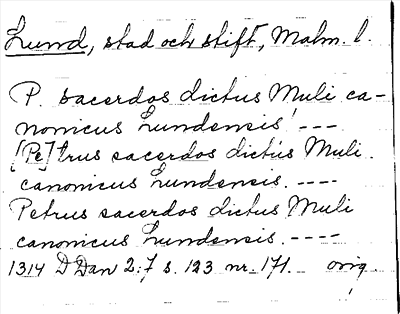 Lund, stad och stift, Malm. l.
P. sacerdos dictus Muli ca-
nonicus Lundensis! ---
[Pe]trus sacerdos dictus Muli.
canonicus Lundensis. ----
Petrus sacerdos dictus Muli
canonicus Lundensis. ----
1314 D Dan 2:7 s. 123 nr. 171. orig.